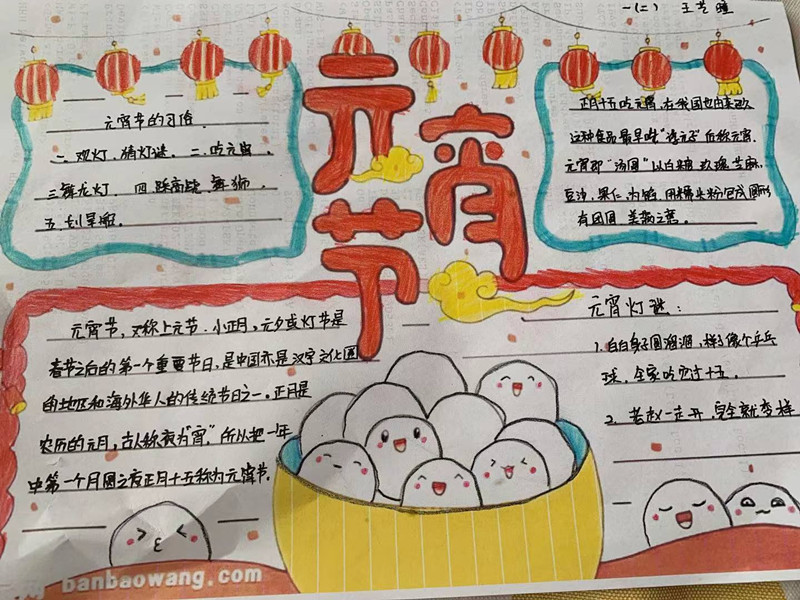 一(二) 王艺曈
元宵节
元宵节的习俗
一. 观灯、猜灯谜. 二. 吃元宵.
三舞龙灯. 四. 踩高跷 舞狮.
五. 划旱船.
正月十五吃元宵,在我国也由来已久
这种食品最早叫"浮元子"后称元宵.
元宵即"汤圆"以白糖 玫瑰 芝麻.
豆沙. 果仁. 为馅. 用糯米粉包成圆形
有团圆 美满之意.
元宵节, 又称上元节. 小正月, 元夕或灯节是
春节之后的第一个重要节日, 是中国亦是汉字文化圈
的地区和海外华人的传统节日之一. 正月是
农历的元月, 古人称夜为"宵". 所以把一年
中第一个月圆之夜正月十五称为元宵节.
元宵灯谜:
1. 白白身子圆溜溜, 样子像个乒乓
球. 全家吃它过十五.
2. 老赵一走开, 完全就变样
banbaowang.com